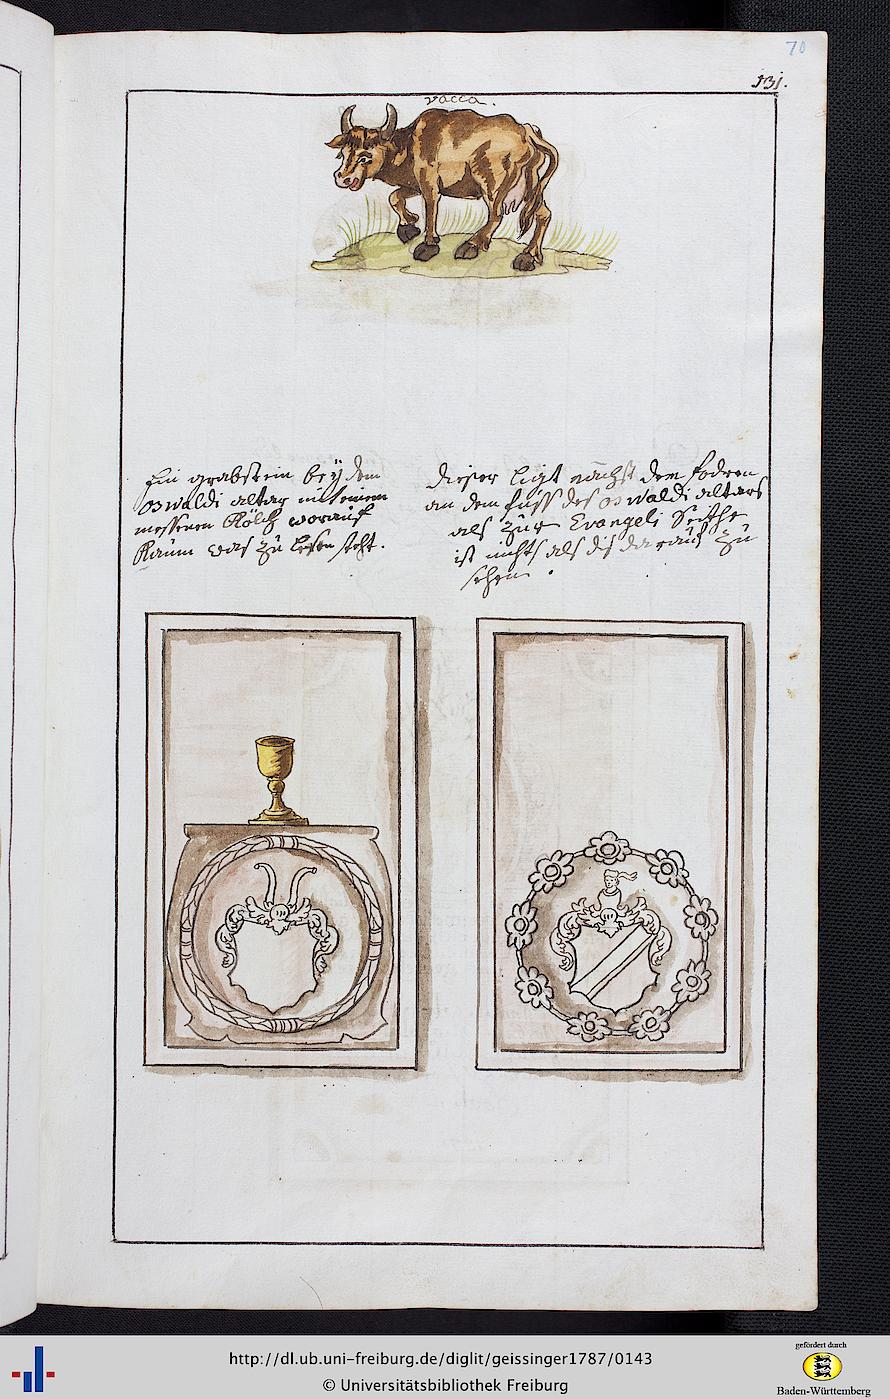 70
131.
vacca.
Ein grabstein beÿ dem
oswaldi altar mit einem
messenen Kölch worauf
Kaum was zu lesen steht.
dieser ligt nächst dem fodren
an dem fuss des oswaldi altars
als zur Evangeli Seithe
ist nichts als dis darauf zu
sehen.
http://dl.ub.uni-freiburg.de/diglit/geissinger1787/0143
© Universitätsbibliothek Freiburg
gefördert durch
Baden-Württemberg